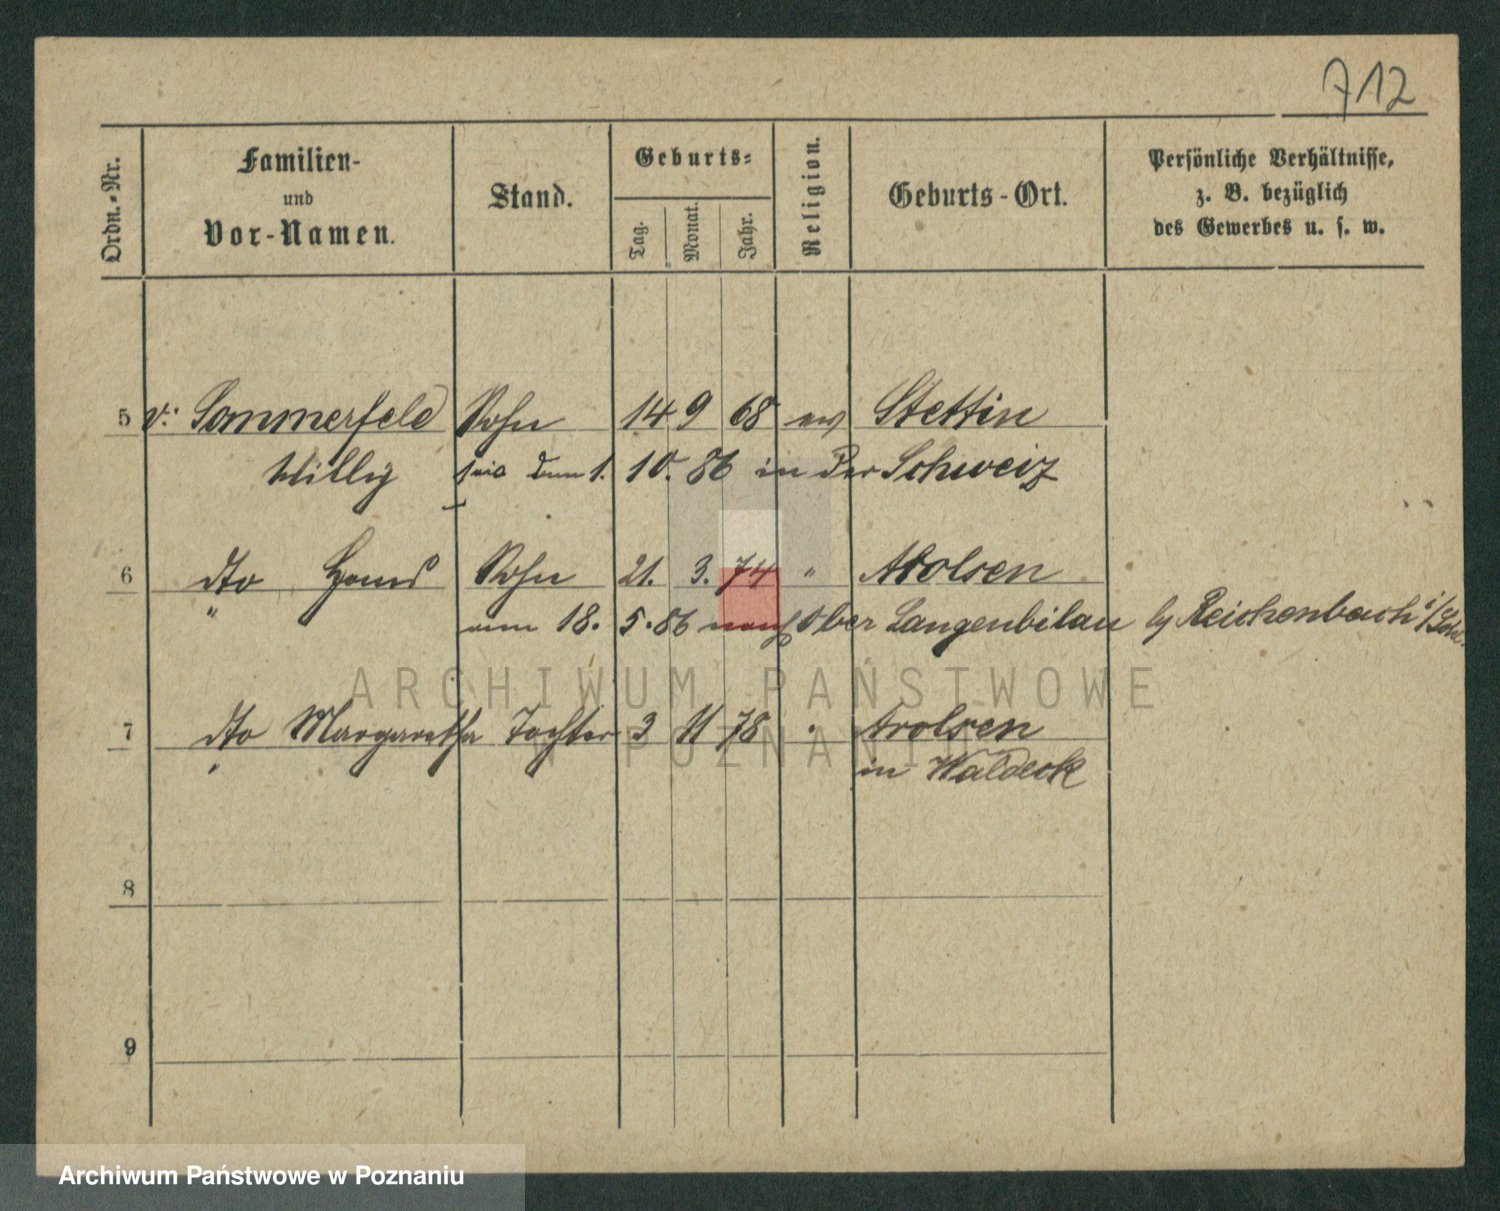 712
Ordn.-Nr.
Familien-
und
Vor-Namen.
Stand.
Geburts-
Tag.
Monat.
Jahr.
Religion.
Geburts-Ort.
Persönliche Verhältnisse,
z. B. bezüglich
des Gewerbes u. s. w.
5 v. Sommerfeld Sohn 14 9 68 ev Stettin
Willy seit dem 1. 10. 86 in der Schweiz
6 dto Hans Sohn 21. 3. 74 " Arolsen
" am 18. 5. 86 nach Ober Langenbilau by Reichenbach i/Schl.
7 dto Margaretha Tochter 3 11 78 " Arolsen
in Waldeck
8
9
ARCHIWUM PAŃSTWOWE
W POZNANIU
Archiwum Państwowe w Poznaniu